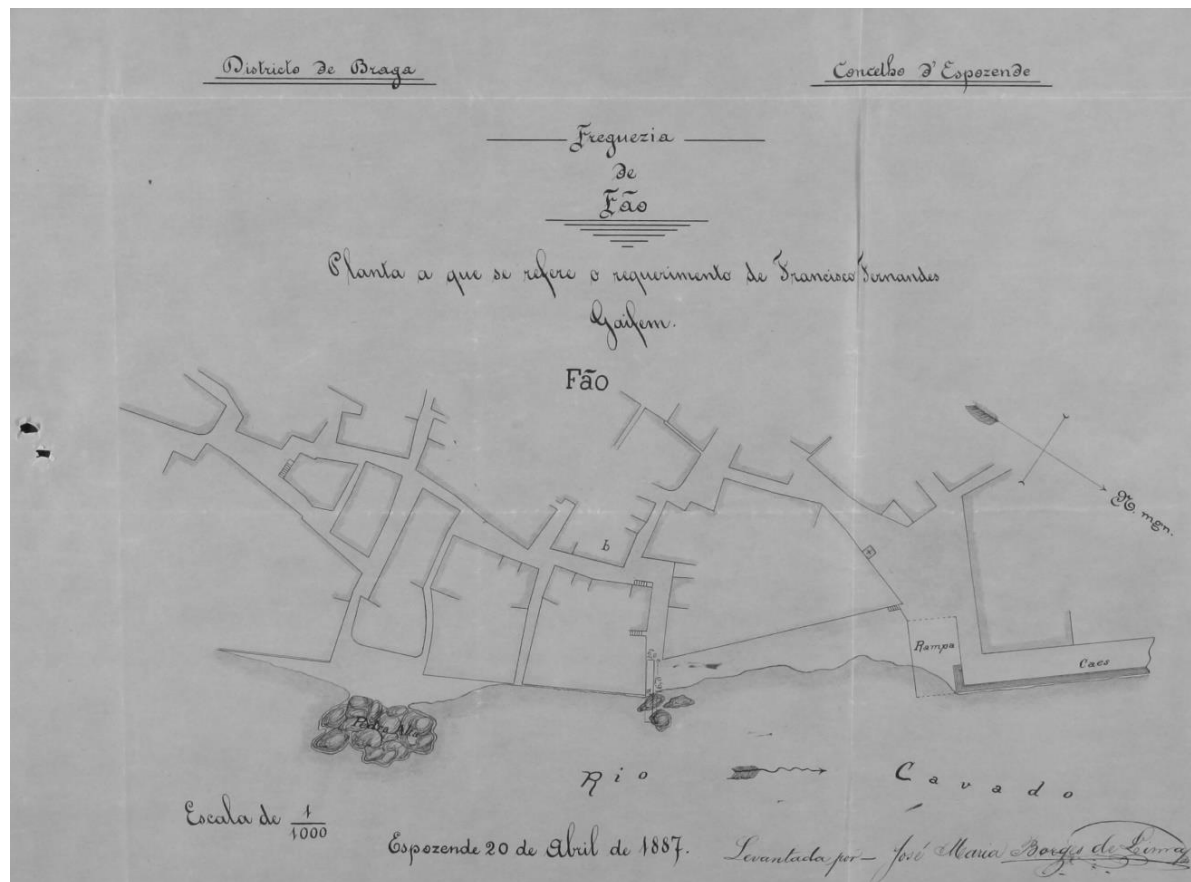 Districto de Braga
Concelho d'Espozende
Freguezia
de
Fão
Planta a que se refere o requerimento de Francisco Fernandes
Gaifem.
Fão
N. mgn.
b
Rampa
Caes
Pedra Alta
Rio Cavado
Escala de 1/1000
Espozende 20 de Abril de 1887.
Levantada por — José Maria Borges de Lima